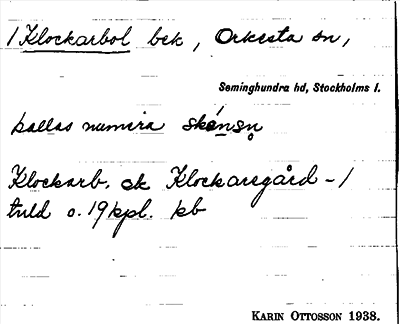 1 Klockarbol bek, Orkesta sn,
Seminghundra hd, Stockholms l.
kallas numera
Klockarb. ok Klockaregård - 1
o. 19 kpl. kb
KARIN OTTOSSON 1938.